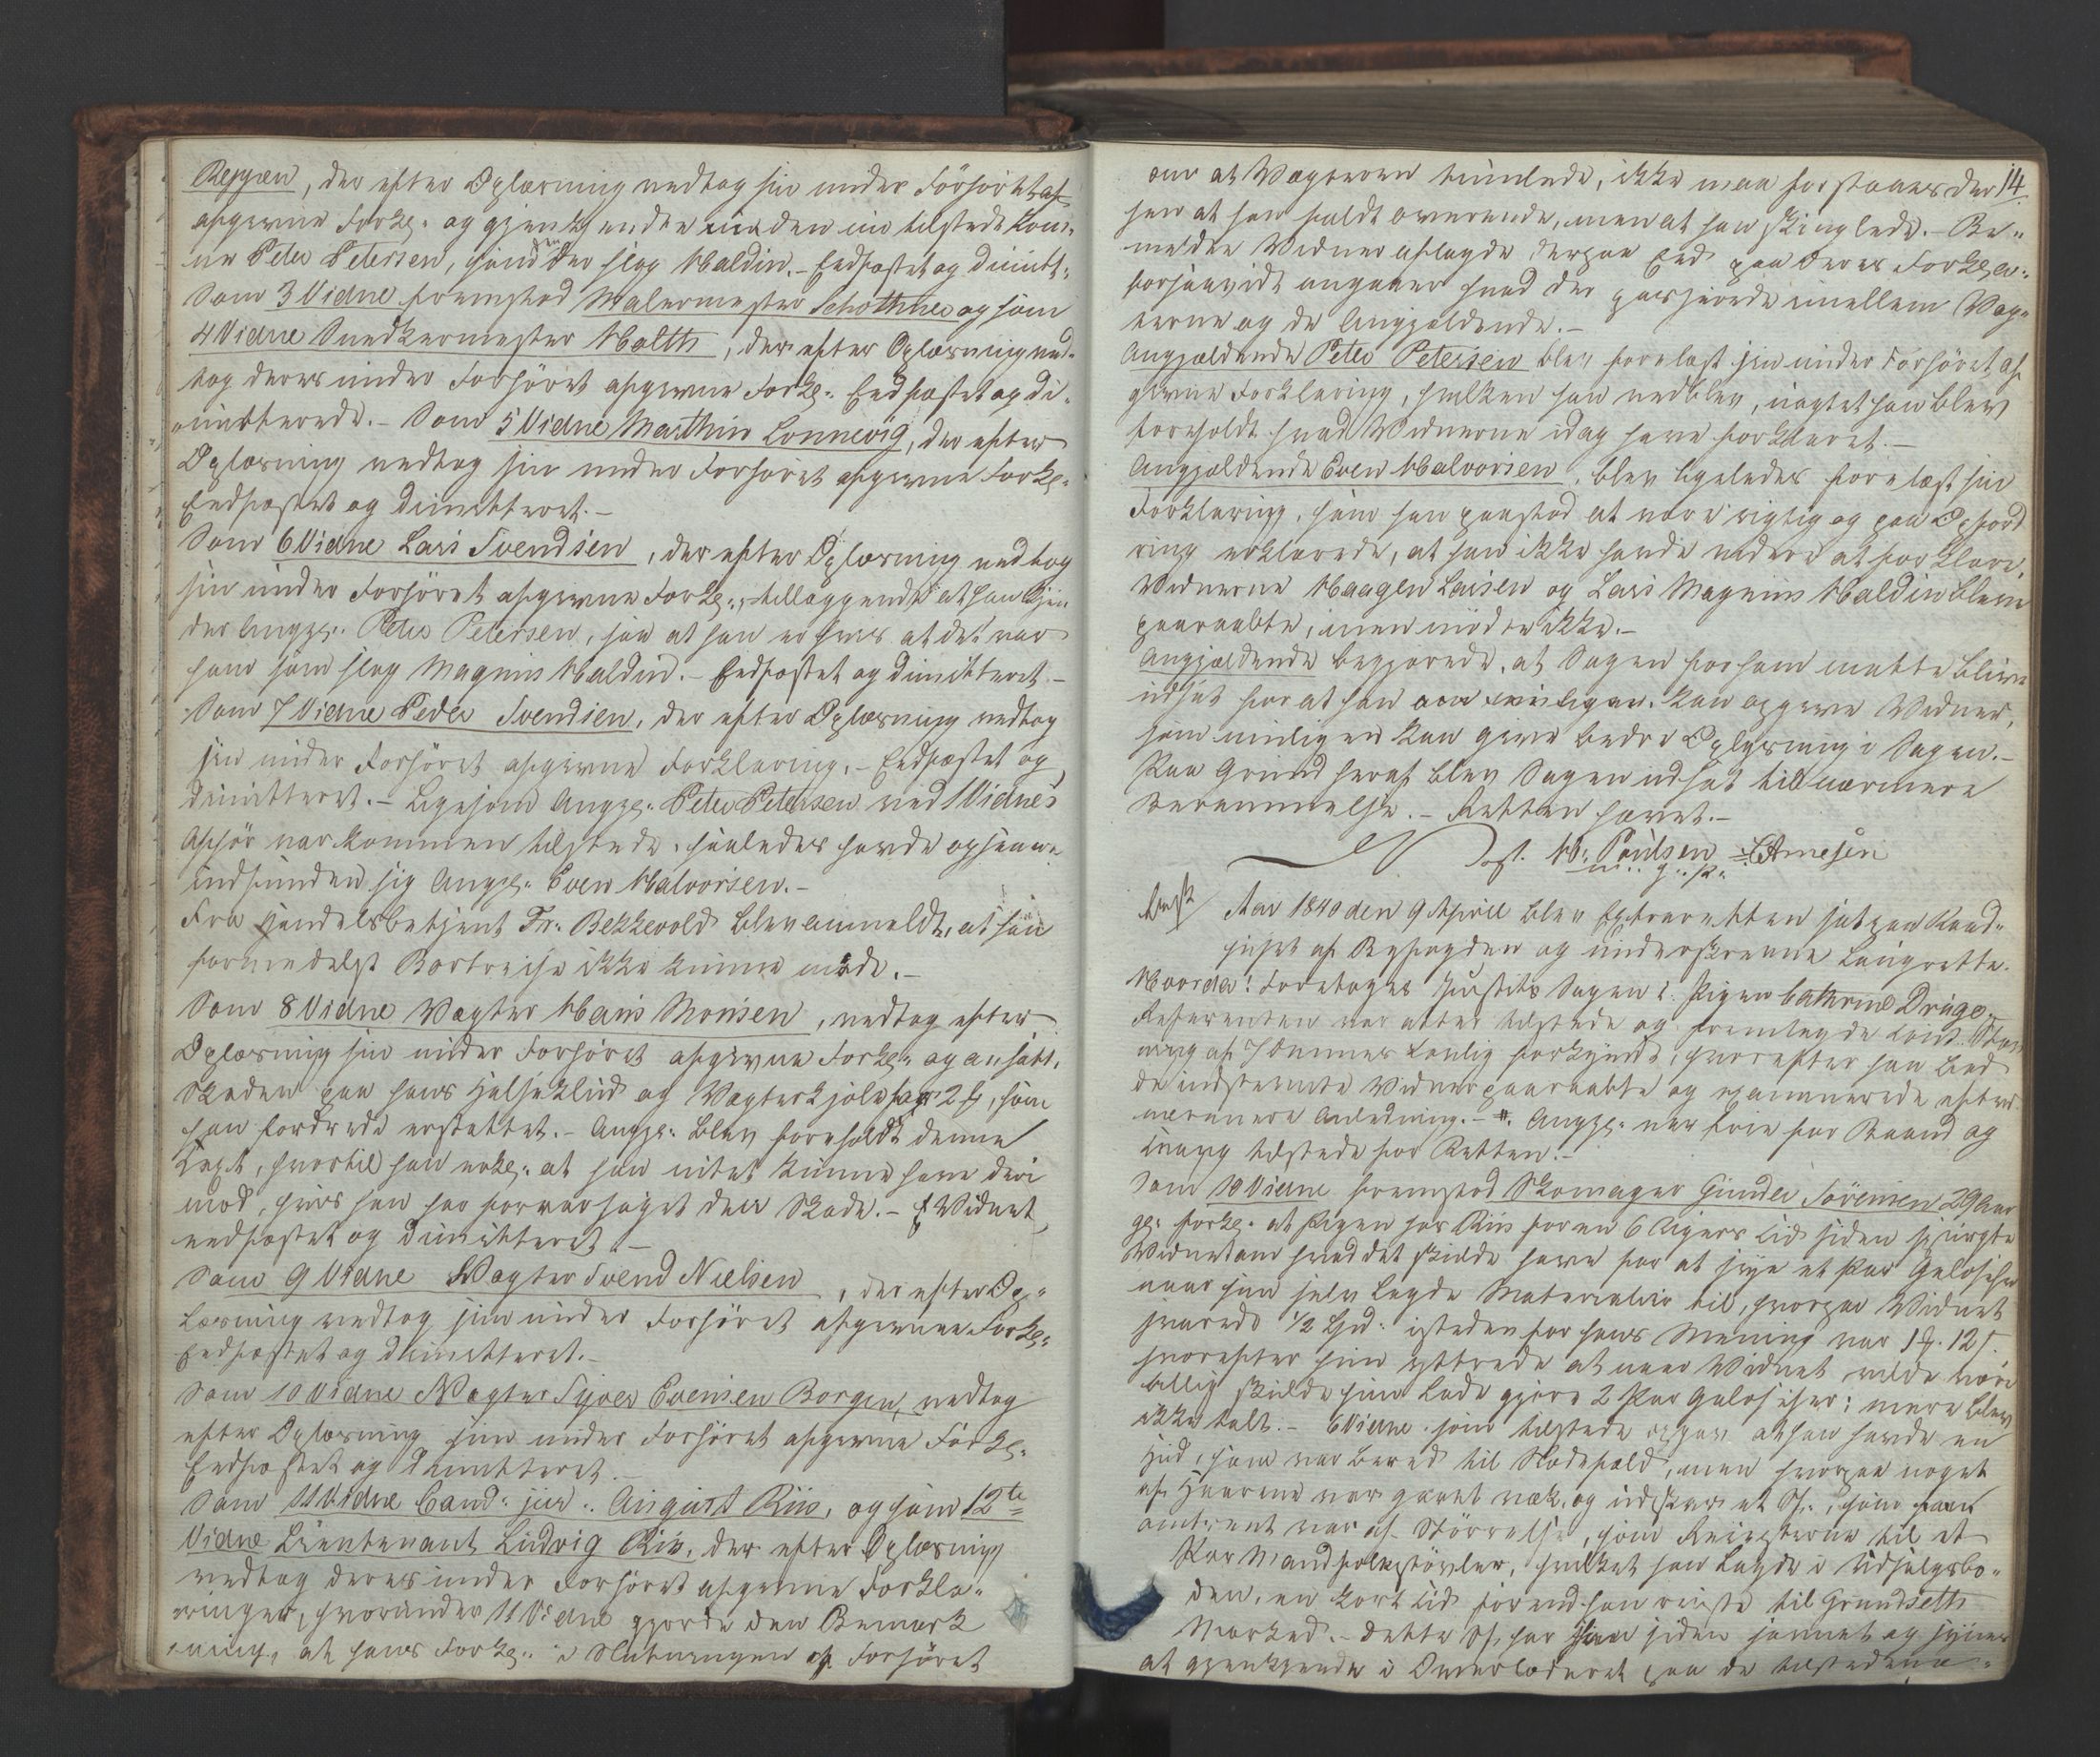 Beppen, der efter Oplæsning vedtog sin under Forhöret
afgivne Forkl: og gjenkjendte den nu tilstede kom-
ne Peter Petersen, som den der slog Haldin. – Eedfæstet og dimitt:
Som 3 Vidne fremstod Malermester Schothne og som
4 Vidne Snedkermester Holth, der efter Oplæsning ved-
tog deres under Forhöret afgivne Forkl: Eedfæstet og di-
mitterede. – Som 5 Vidne Marthin Lonnevig, der efter
Oplæsning vedtog sin under Forhöret afgivne Forkl:
Eedfæstet og dimitteret. –
Som 6 Vidne Lars Svendsen, der efter Oplæsning vedtog
sin under Forhöret afgivne Forkl:, tillæggende at han kjen
der Angjl: Peter Petersen, saa at han er vis at det var
ham som slog Magnus Haldin. – Eedfæstet og dimitteret –
Som 7 Vidne Peder Svendsen, der efter Oplæsning vedtog
sin under Forhöret afgivne Forklaring. – Eedfæstet og
dimitteret. – Ligesom Angjl: Peter Petersen ved 1 Vidnes
Afhör var kommen tilstede, saaledes havde ogsaa nu
indfunden sig Angjl: Even Halvorsen. –
Fra Handelsbetjent Fr: Bekkevold blev anmeldt, at han
formedelst Bortreise ikke kunne möde. –
Som 8 Vidne Vægter Hans Monsen, vedtog efter
Oplæsning sin under Forhöret afgivne Forkl: og ansatte
Skaden paa hans Halseklud og Vægterkjole for 2 , som
han fordrede erstattet. – Angjl: blev foreholdt denne
Taxt, hvortil han erkl: at han intet kunne have deri
mod, hvis han har foraarsaget den Skade. – Vidnet
eedfæstet og dimitteret. –
Som 9 Vidne Vægter Svend Nielsen, der efter Op-
læsning vedtog sin under Forhöret afgivne Forkl:
Eedfæstet og dimitteret. –
Som 10 Vidne Vægter Syver Evensen Borgen, vedtog
efter Oplæsning sin under Forhöret afgivne Forkl:
Eedfæstet og dimitteret. –
Som 11 Vidne Cand: jur: August Riis, og som 12te
Vidne Lieutenant Ludvig Riis, der efter Oplæsning
vedtog deres under Forhöret afgivne Forkla-
ringer, hvorunder 11 Vidne gjorde den Bemærk
ning, at hans Forkl: i Slutningen af Forhöret
14.
om at Vægteren tumlede, ikke maa forstaaes der
hen at han faldt overende, men at han skinglede. – Be-
meldte Vidner aflagde derpaa Eed paa deres Forkla:
forsaavidt angaaer hvad der passerede imellem Væg-
terne og de Angjældende. –
Angjældende Peter Petersen blev forelæst sin under Forhöret af
givne Forklaring, hvilken han vedblev, uagtet han blev
foreholdt hvad Vidnerne idag have forklaret. –
Angjældende Even Halvorsen, blev ligeledes forelæst sin
Forklaring, som han paastod at være rigtig og paa Opford
ring erklærede, at han ikke havde videre at forklare.
Vidnerne Haagen Larsen og Lars Magnus Haldin bleve
paaraabte, men mödte ikke. –
Angjældende begjærede, at Sagen for ham maatte blive
udsat for at han kan opgive Vidner,
som muligen kan give bedre Oplysning i Sagen. –
Paa Grund heraf blev Sagen udsat til nærmere
Berammelse. – Retten hævet. –
H: Poulsen Arnesen
m: g: p:
Aar 1840 den 9 April blev Extraretten sat paa Raad-
huset af Byfogden og underskrevne Laugrette.
Hvorda: Foretoges Justits Sagen c. Pigen Cathrine Drage.
Referenten var atter tilstede og fremlagde Cont. Stev
ning af 7 dennes lovlig forkyndt, hvorefter han lod
de indstevnte Vidner paaraabte og examinerede efter
nærmere Anledning. – Angjl: var frie for Baand og
Tvang tilstede for Retten. –
Som 10 Vidne fremstod Skomager Gunder Sörensen 29 Aar
gl: forkl: at Pigen hos Riis for en 6 Ugers Tid siden spurgte
Vidnet om hvad det skulde have for at sye et Par Galoscher
naar hun selv lagde Materialier til, hvorpaa Vidnet
svarede 1/2 Spd: istedenfor hans Mening var 1 . 12 .
hvorefter hun yttrede at naar Vidnet vilde være
billig skulde hun lade gjöre 2 Par Galoscher; mere blev
ikke talt. – 6 Vidne som tilstede opgav at han havde en
Hud, som var bered til Slædefæld, men hvorpaa noget
af Haarene var gaaet væk, og udskar et St:, som
omtrent var af Störrelse, som Reisterne til et
Par Mandfolkestövler, hvilket han lagde i Udsalgsbo-
den, en kort Tid förend han reiste til Grundsetts
Marked. – Dette St: har han siden savnet og synes
at gjenkjende i Overlæderet paa de tilstedevæ-